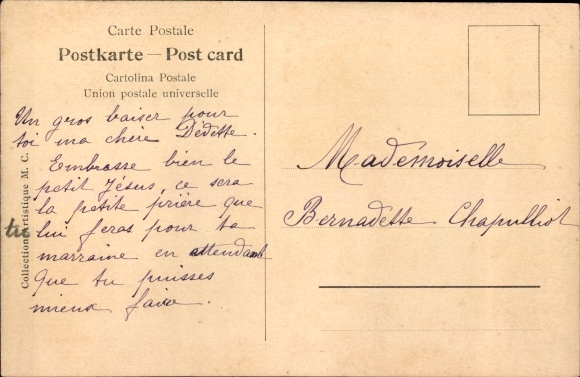 Carte Postale
Postkarte — Post card
Cartolina Postale
Union postale universelle
Un gros baiser pour
toi ma chère Dédette.
Embrasse bien le
petit Jésus, ce sera
la petite prière que
tu lui feras pour ta
marraine en attendant
que tu puisses
mieux faire.
Collection Artistique M. C.
Mademoiselle
Bernadette Chapulliot